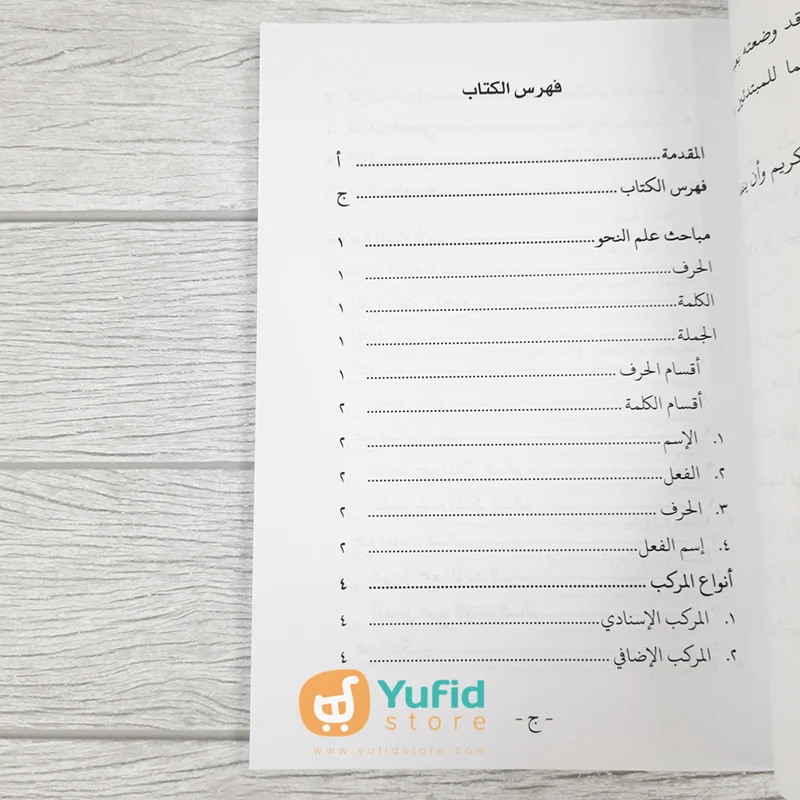 فهرس الكتاب
المقدمة ........ أ
فهرس الكتاب ........ ج
مباحث علم النحو ........ ١
الحرف ........ ١
الكلمة ........ ١
الجملة ........ ١
أقسام الحرف ........ ١
أقسام الكلمة ........ ٢
١. الإسم ........ ٢
٢. الفعل ........ ٢
٣. الحرف ........ ٢
٤. إسم الفعل ........ ٢
أنواع المركب ........ ٤
١. المركب الإسنادي ........ ٤
٢. المركب الإضافي ........ ٤
- ج -
Yufid
store
www.yufidstore.com
وضعته
كريم وأن